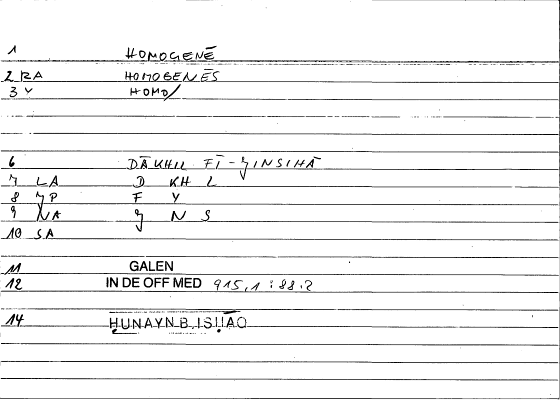 1 HOMOGENĒ
2 RA HOMOGENĒS
3 Y HOMO/
6 DĀKHIL FĪ-ǦINSIHĀ
7 LA D KH L
8 ǦP F Y
9 NA Ǧ N S
10 SA
11 GALEN
12 IN DE OFF MED 915,1 : 88.2
14 ḤUNAYN B. ISḤĀQ